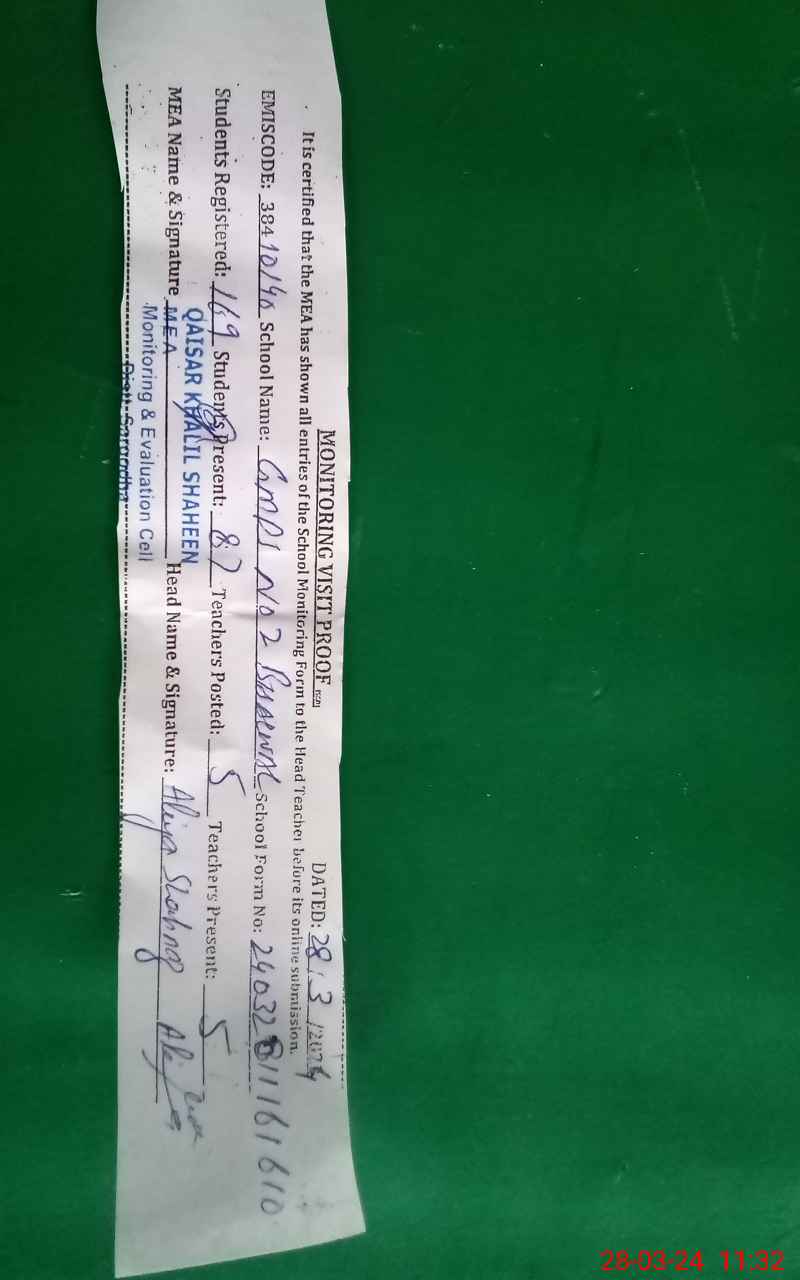 MONITORING VISIT PROOF
DATED: 28/3/2024
It is certified that the MEA has shown all entries of the School Monitoring Form to the Head Teacher before its online submission.
EMISCODE: 384101 School Name: GMPS NO 2 School Form No: 24032811161610
Students Registered: 169 Students Present: 87 Teachers Posted: 5 Teachers Present: 5
QAISAR KHALIL SHAHEEN
MEA Name & Signature MEA Head Name & Signature: Aliya Shahnaz
Monitoring & Evaluation Cell
Distt. Sargodha
28-03-24 11:32